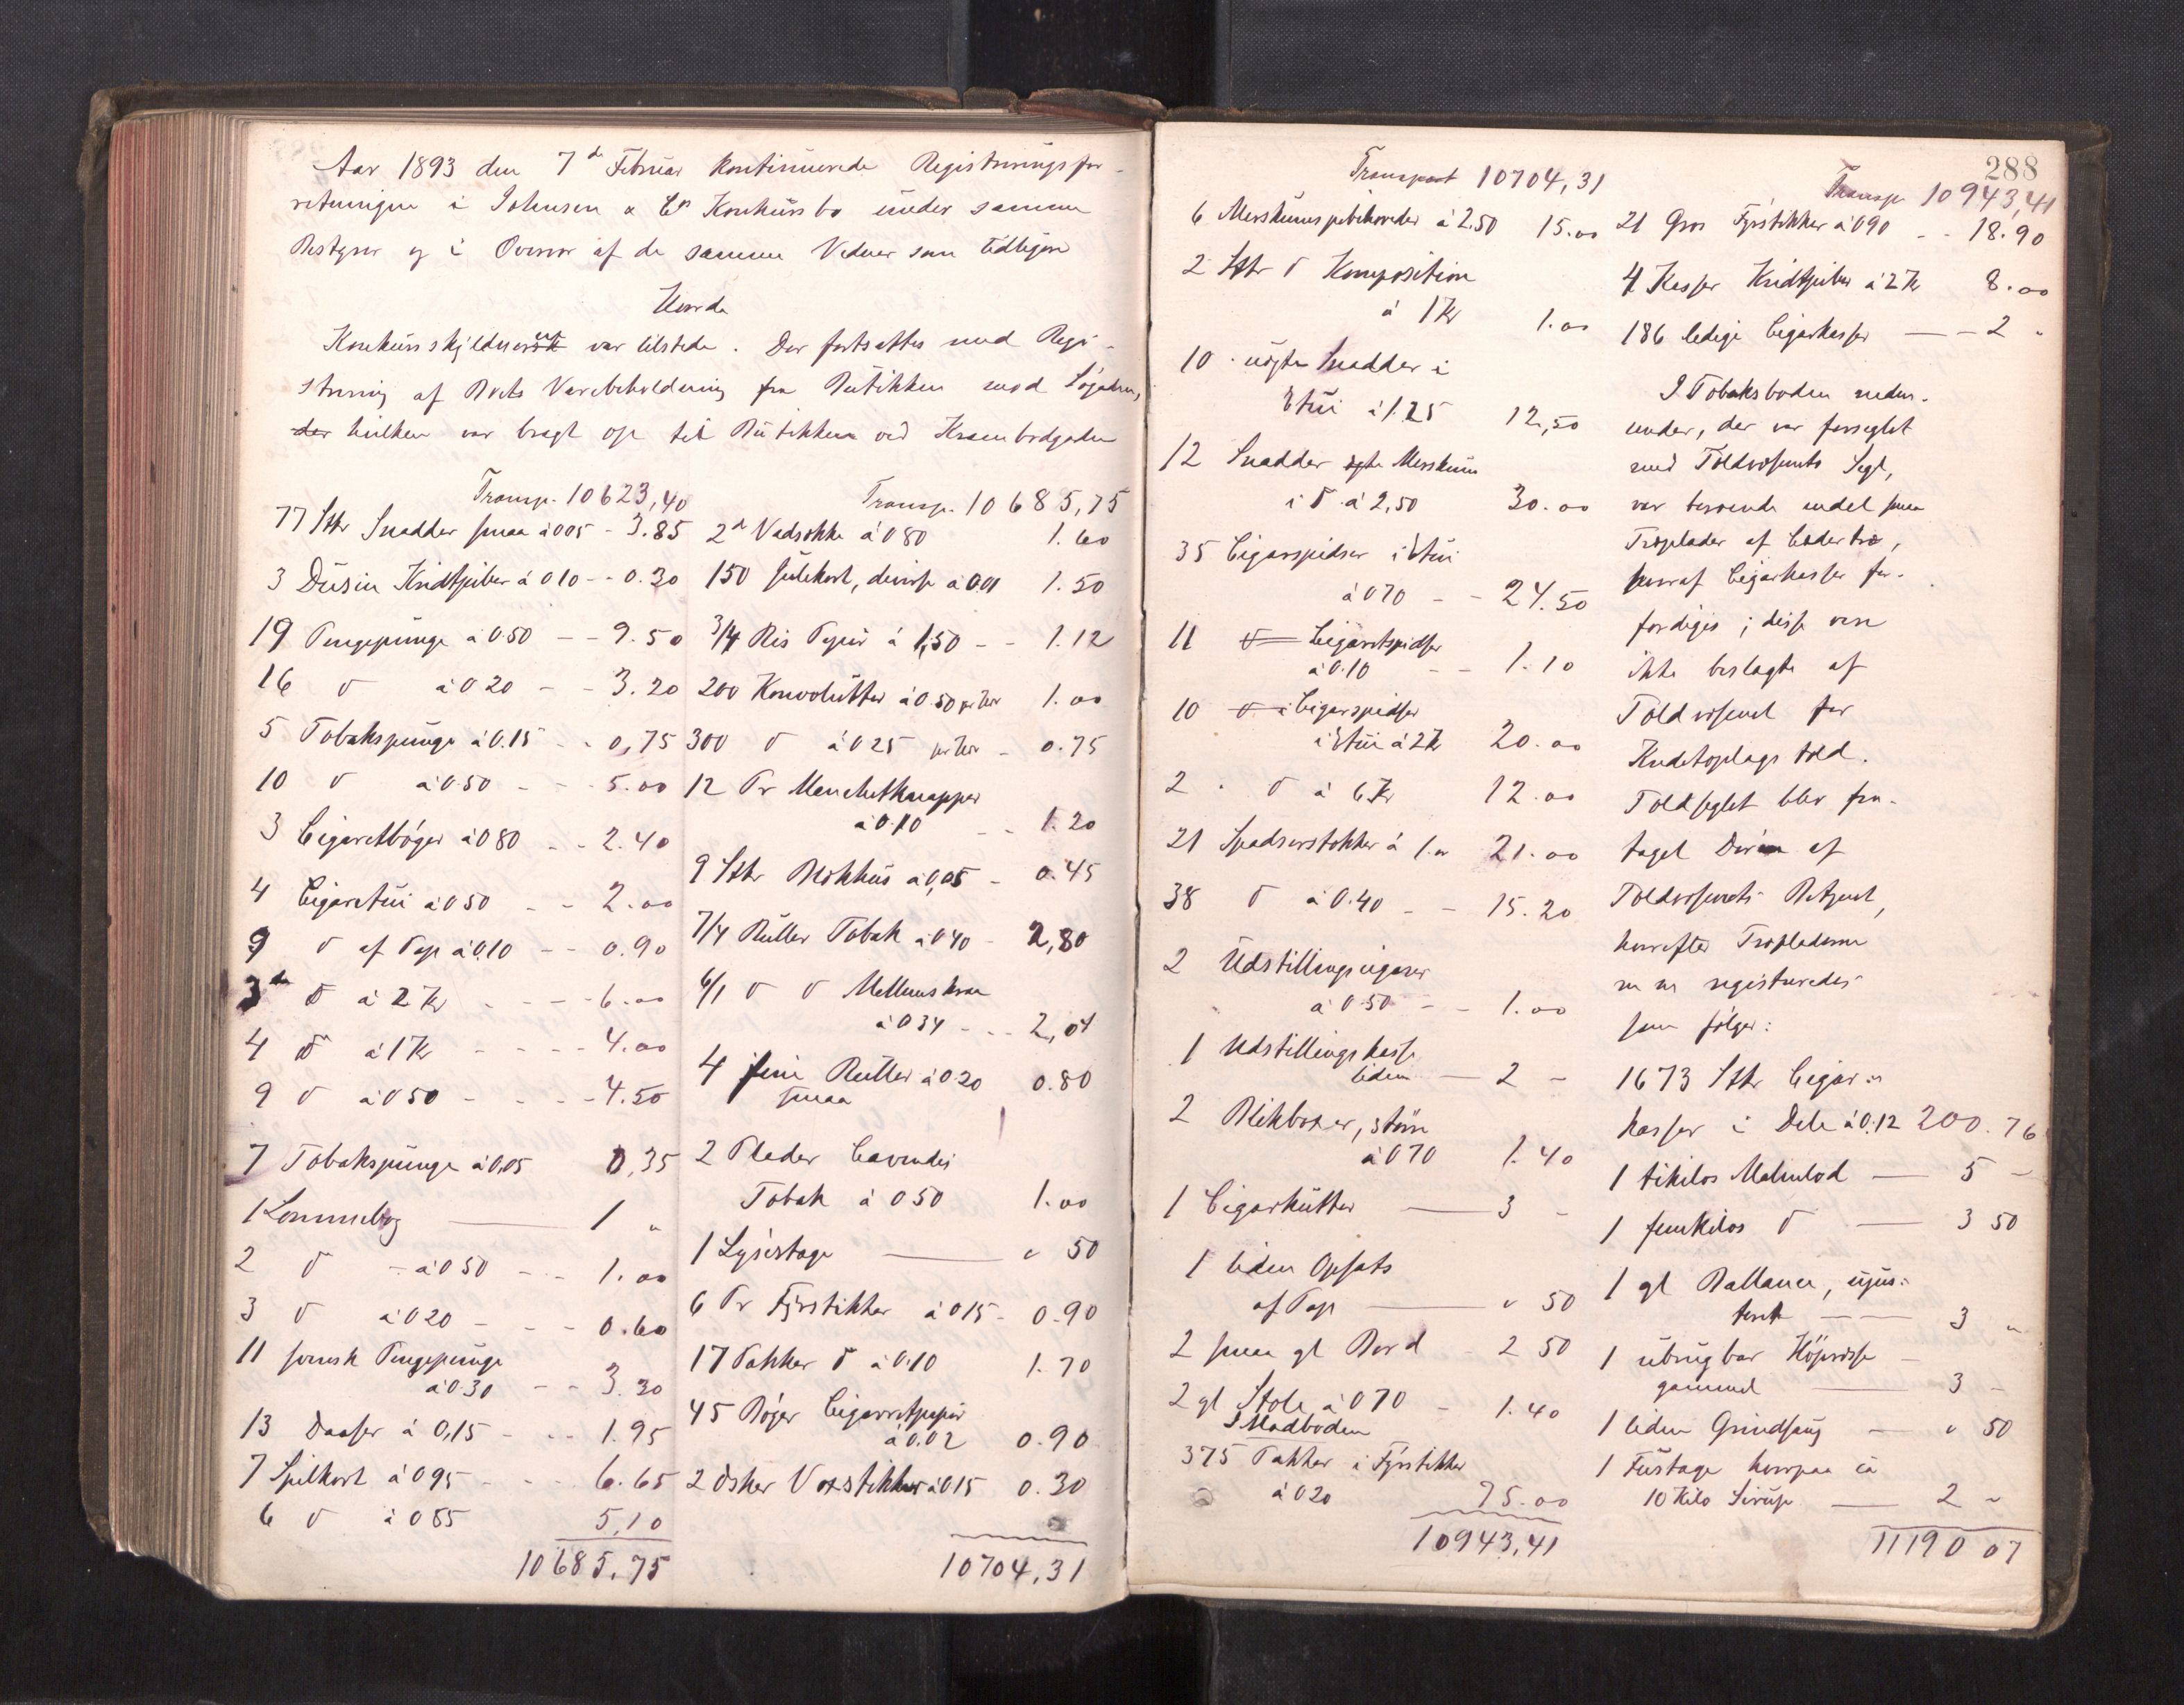 Aar 1893 den 7de Februar kontinuerede Registreringsfor-
retningen i Johnsen & Co Konkursbo under samme
Bestyrer og i Overvær af de samme Vidner som tidligere
Hvorda
Konkursskyldneren var tilstede. Der fortsattes med Regi-
strering af Boets Varebeholdning fra Butikken mod Søgaden,
der hvilken var bragt op til Butikken ved Krambodgaden
Transp. 10623,40
77 Stkr Snadder smaa à 005 - 3.85
3 Dusin Kridtpiber à 010 - - 0.30
19 Pengepunge à 0.50 - - 9.50
16 d à 020 - - 3.20
5 Tobakspunge à 0.15 - - 0,75
10 d à 0.50 - - - 5.00
3 Cigaretbøger à 080 - - 2.40
4 Cigaretui à 050 - - 2.00
9 d af Pap à 0.10 - - 0.90
3 d à 2 Kr - - - 6.00
4 d à 1 Kr - - - - 4.00
9 d à 050 - - - - 4.50
7 Tobakspunge à 0,05 0,35
1 Lommebog — 1 "
2 d - à 050 - - - 1.00
3 d à 020 - - - 0.60
11 svensk Pengepunge
à 0.30 - - 3.30
13 Daaser à 0,15 - - - 1.95
7 Spilkort à 095 - - - 6.65
6 d à 085 5,10
10685,75
Transp. 10685,75
2 d Vadsække à 080 1.60
150 Julekort, diverse à 0.01 1.50
3/4 Ris Papir à 1,50 - - 1.12
200 Konvolutter à 0.50 pr Hdr 1.00
300 d à 025 pr Hdr - 0.75
12 Pr Manchetknapper
à 0.10 - - 1.20
9 Stkr Blækhus à 0,05 - 0.45
7/4 Ruller Tobak à 040 - 2,80
6/1 d d Mellemskraa
à 034 - - - 2,04
4 fine Ruller à 0.20 0.80
smaa
2 Plader Cavendis
Tobak à 050 1.00
1 Lysestage — " 50
6 Pr Fyrstikker à 015 - 0.90
17 Pakker d à 0.10 1.70
45 Bøger Cigarretpapir
à 0.02 0.90
2 Æsker Voxstikker à 015 0.30
10704,31
288
Transport 10704,31
6 Merskumspibehoveder à 2.50 15.00
2 Stkr d Komposition
à 1 Kr 1.00
10 uægte Snadder i
Etui à 1.25 12,50
12 Snadder ægte Merskum
i d à 2,50 30.00
35 Cigarspidser i Etui
à 070 - - 24.50
11 d Cigaretspidser
à 0.10 - - 1.10
10 d i Cigarspidser
i Etui à 2 Kr 20.00
2 d à 6 Kr 12.00
21 Spadserstokker à 1.00 21.00
38 d à 0.40 - - 15.20
2 Udstillingscigarer
à 0.50 - - 1.00
1 Udstillingskasse
liden — 2 -
2 Blikboxer, større
à 070 1.40
1 Cigarkutter — 3 -
1 liden Opsats
af Pap — " 50
2 smaa gl Bord - 2 50
2 gl Stole à 070 - 1.40
I Madboden
375 Pakker i Fyrstikker
à 020 75.00
10943,41
Transp 10943,41
21 Gros Fyrstikker à 090 - - 18.90
4 Kasser Kridtpiber à 2 Kr 8.00
186 ledige Cigarkasser — - 2 "
I Tobaksboden neden-
under, der var forseglet
med Toldvæsenets Segl,
var beroende endel smaa
Træplader af Cedertræ,
hvoraf Cigarkasser for-
færdiges; disse vare
ikke beslagte af
Toldvæsenet for
Kreditoplags Told.
Toldseglet blev fra-
taget Døren af
Toldvæsenets Betjent,
hvorefter Træpladerne
m m registreredes
som følger:
1673 Stkr Cigar-
kasser i Dele à 0.12 200.76
1 tikilos Malmlod — 5 -
1 femkilos d — 3 50
1 gl Ballance, ujus-
teret — 3 "
1 ubrugbar Høvrasp -
gammel — 3 -
1 liden Grindsaug — " 50
1 Fustage hvorpaa ca
10 Kilo Sirup — 2 -
11190 07